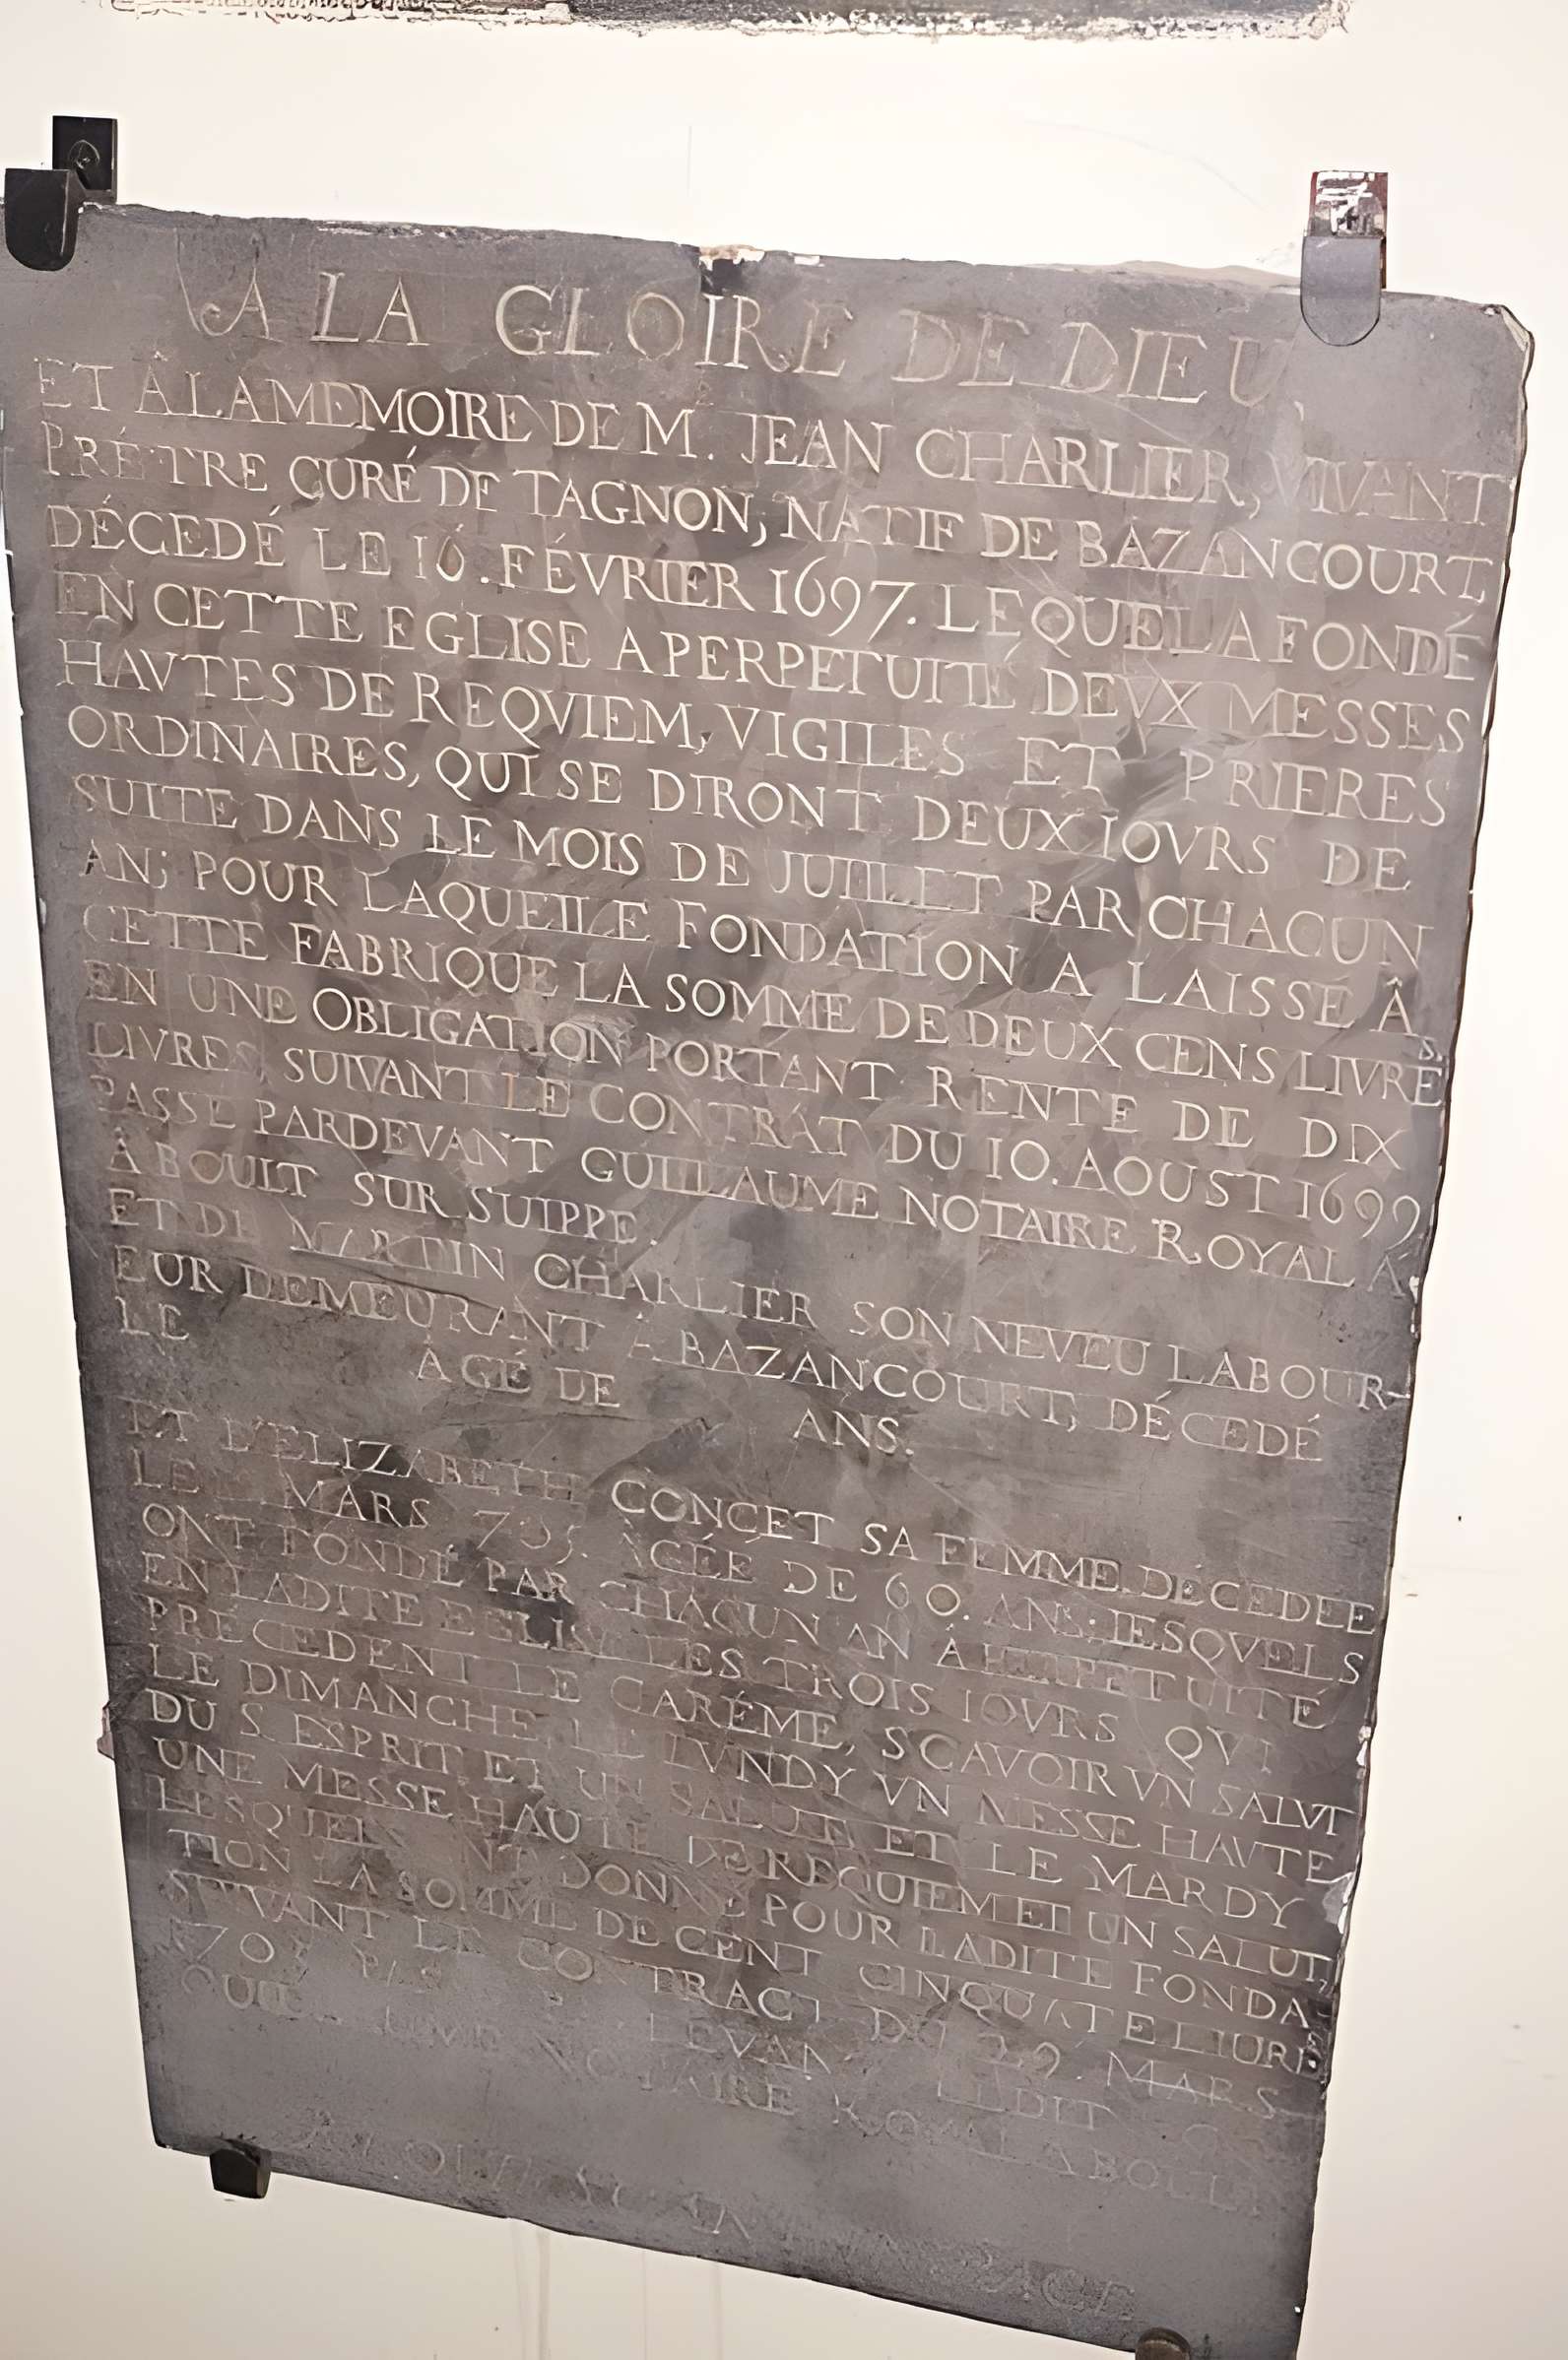 A LA GLOIRE DE DIEU,
ET Â LA MEMOIRE DE M. JEAN CHARLIER, VIVANT
PRÉTRE CURÉ DE TAGNON, NATIF DE BAZANCOURT
DÉCEDÉ LE 16. FÉVRIER 1697. LEQUEL A FONDÉ
EN CETTE EGLISE A PERPETUITÉ DEVX MESSES
HAVTES DE REQVIEM, VIGILES ET PRIERES
ORDINAIRES, QUI SE DIRONT DEUX IOVRS DE
SUITE DANS LE MOIS DE JUILLET PAR CHACUN
AN; POUR LAQUELLE FONDATION A LAISSÉ Â
CETTE FABRIQUE LA SOMME DE DEUX CENS LIVRES.
EN UNE OBLIGATION PORTANT RENTE DE DIX
LIVRES, SUIVANT LE CONTRAT DU 10. AOUST 1699
PASSÉ PARDEVANT GUILLAUME NOTAIRE ROYAL Â
Â BOULT SUR SUIPPE.
ET DE MARTIN CHARLIER SON NEVEU LABOUR-
EUR DEMEURANT A BAZANCOURT, DÉCEDÉ
LE ÂGÉ DE ANS.
ET D'ELIZABETH CONCET SA FEMME DÉCEDÉE
LE MARS ÂGÉE DE 60. ANS; LESQVELS
ONT FONDÉ PAR CHACUN AN Â PERPETUITÉ
EN LADITE EGLISE LES TROIS IOVRS QVI
PRECEDENT LE CARÉME, SCAVOIR VN SALVT
LE DIMANCHE, LE LVNDY VN MESSE HAVTE
DU S. ESPRIT ET UN SALUT, ET LE MARDY
UNE MESSE HAUTE DE REQUIEM ET UN SALUT,
LESQUELS ONT DONNÉ POUR LADITE FONDA
TION LA SOMME DE CENT CINQUATE LIURE
SUIVANT LE CONTRACT DU 29. MARS
LEDIT
NOTAIRE ROYAL A BOULT
PACE